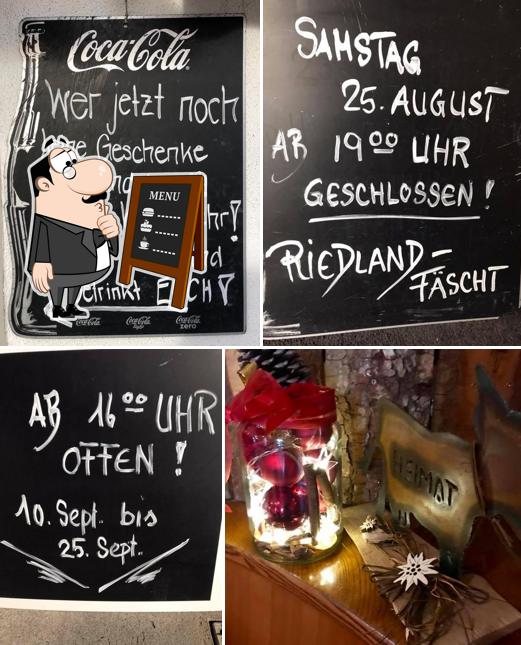 Coca-Cola
Wer jetzt noch
Geschenke
MENU
Coca-Cola
Coca-Cola light
Coca-Cola zero
SAMSTAG
25. AUGUST
AB 19 00 UHR
GESCHLOSSEN !
RIEDLAND-
FÄSCHT
AB 16 00 UHR
OFFEN !
10. Sept. bis
25. Sept.
HEIMAT